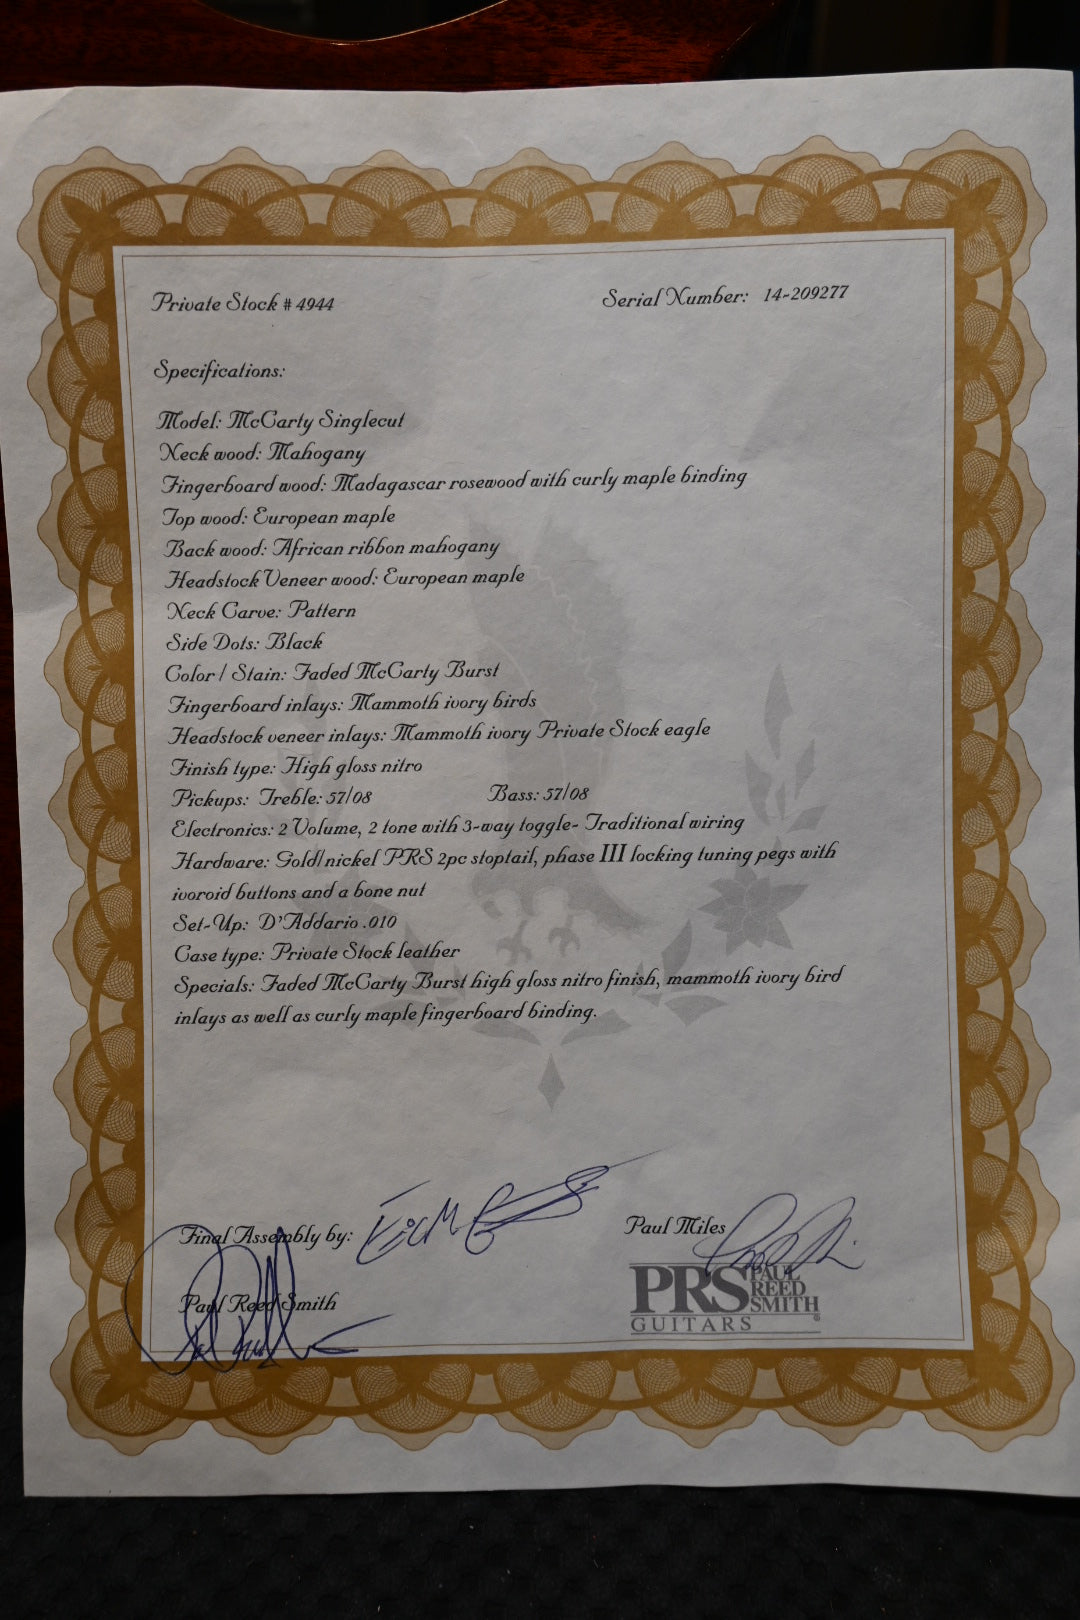 Private Stock # 4944
Serial Number: 14-209277
Specifications:
Model: McCarty Singlecut
Neck wood: Mahogany
Fingerboard wood: Madagascar rosewood with curly maple binding
Top wood: European maple
Back wood: African ribbon mahogany
Headstock Veneer wood: European maple
Neck Carve: Pattern
Side Dots: Black
Color / Stain: Faded McCarty Burst
Fingerboard inlays: Mammoth ivory birds
Headstock veneer inlays: Mammoth ivory Private Stock eagle
Finish type: High gloss nitro
Pickups: Treble: 57/08 Bass: 57/08
Electronics: 2 Volume, 2 tone with 3-way toggle- Traditional wiring
Hardware: Gold/nickel PRS 2pc stoptail, phase III locking tuning pegs with
ivoroid buttons and a bone nut
Set-Up: D'Addario .010
Case type: Private Stock leather
Specials: Faded McCarty Burst high gloss nitro finish, mammoth ivory bird
inlays as well as curly maple fingerboard binding.
Final Assembly by:
Paul Miles
Paul Reed Smith
PRS PAUL REED SMITH
GUITARS